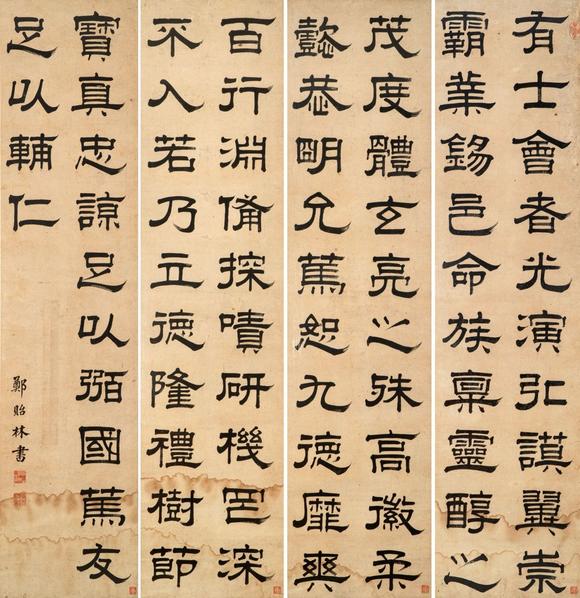 有士會者光演弘謨翼崇
霸業錫邑命族稟靈醇之
茂度體玄亮之殊高徽柔
懿恭明允篤恕九德靡爽
百行淵備探嘖研機罔深
不入若乃立德隆禮樹節
寶真忠諒足以弼國篤友
足以輔仁
鄭貽林書